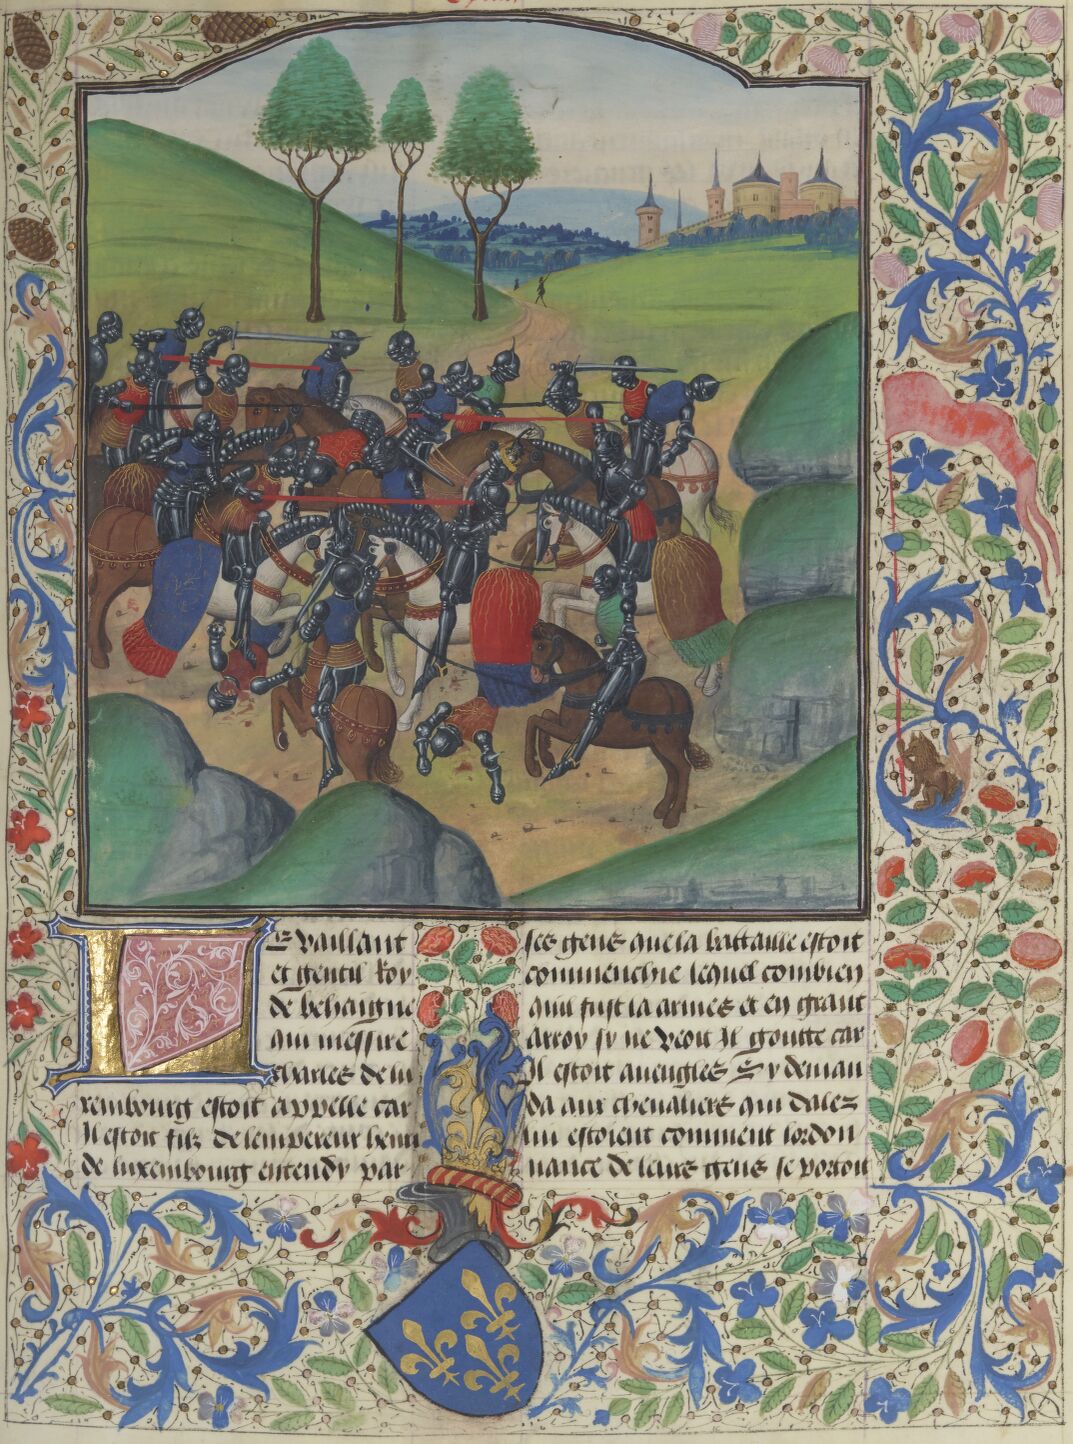 Le vaillant
et gentil Roy
de behaigne
qui messire
charles de lu
xembourg estoit appelle car
Il estoit filz de lempereur henri
de luxembourg entendy par
ses gens que la battaille estoit
commenchie lequel combien
quil fust la armes et en grant
arroy sy ne veoit Il goutte car
Il estoit aueugles Sy deman
da aux chevaliers qui dalez
lui estoient comment lordon
nance de leurs gens se portoit